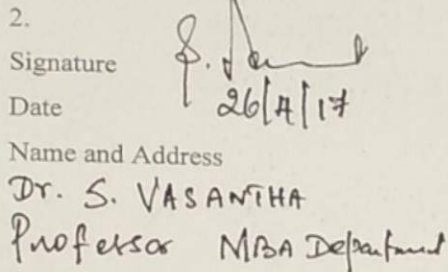 2.
Signature S. Vasantha
Date 26/4/17
Name and Address
Dr. S. VASANTHA
Professor MBA Department